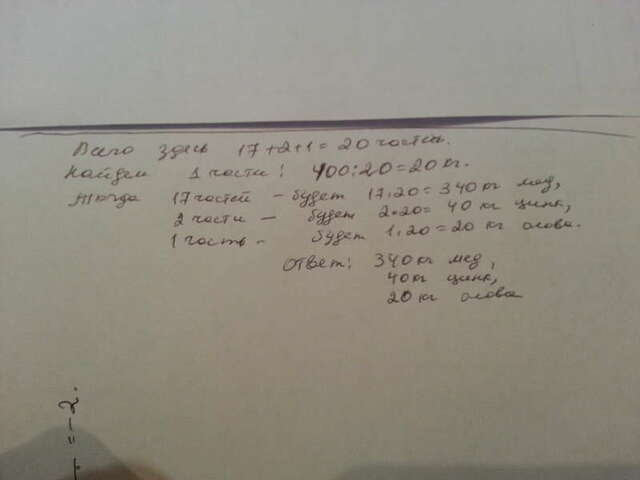 Всего здесь 17+2+1=20 частей.
Найдем 1 части: 400:20=20 кг.
Тогда 17 частей – будет 17·20=340 кг мед,
2 части – будет 2·20= 40 кг цинк,
1 часть – будет 1·20=20 кг олова.
Ответ: 340 кг мед,
40 кг цинк,
20 кг олова
=-2.